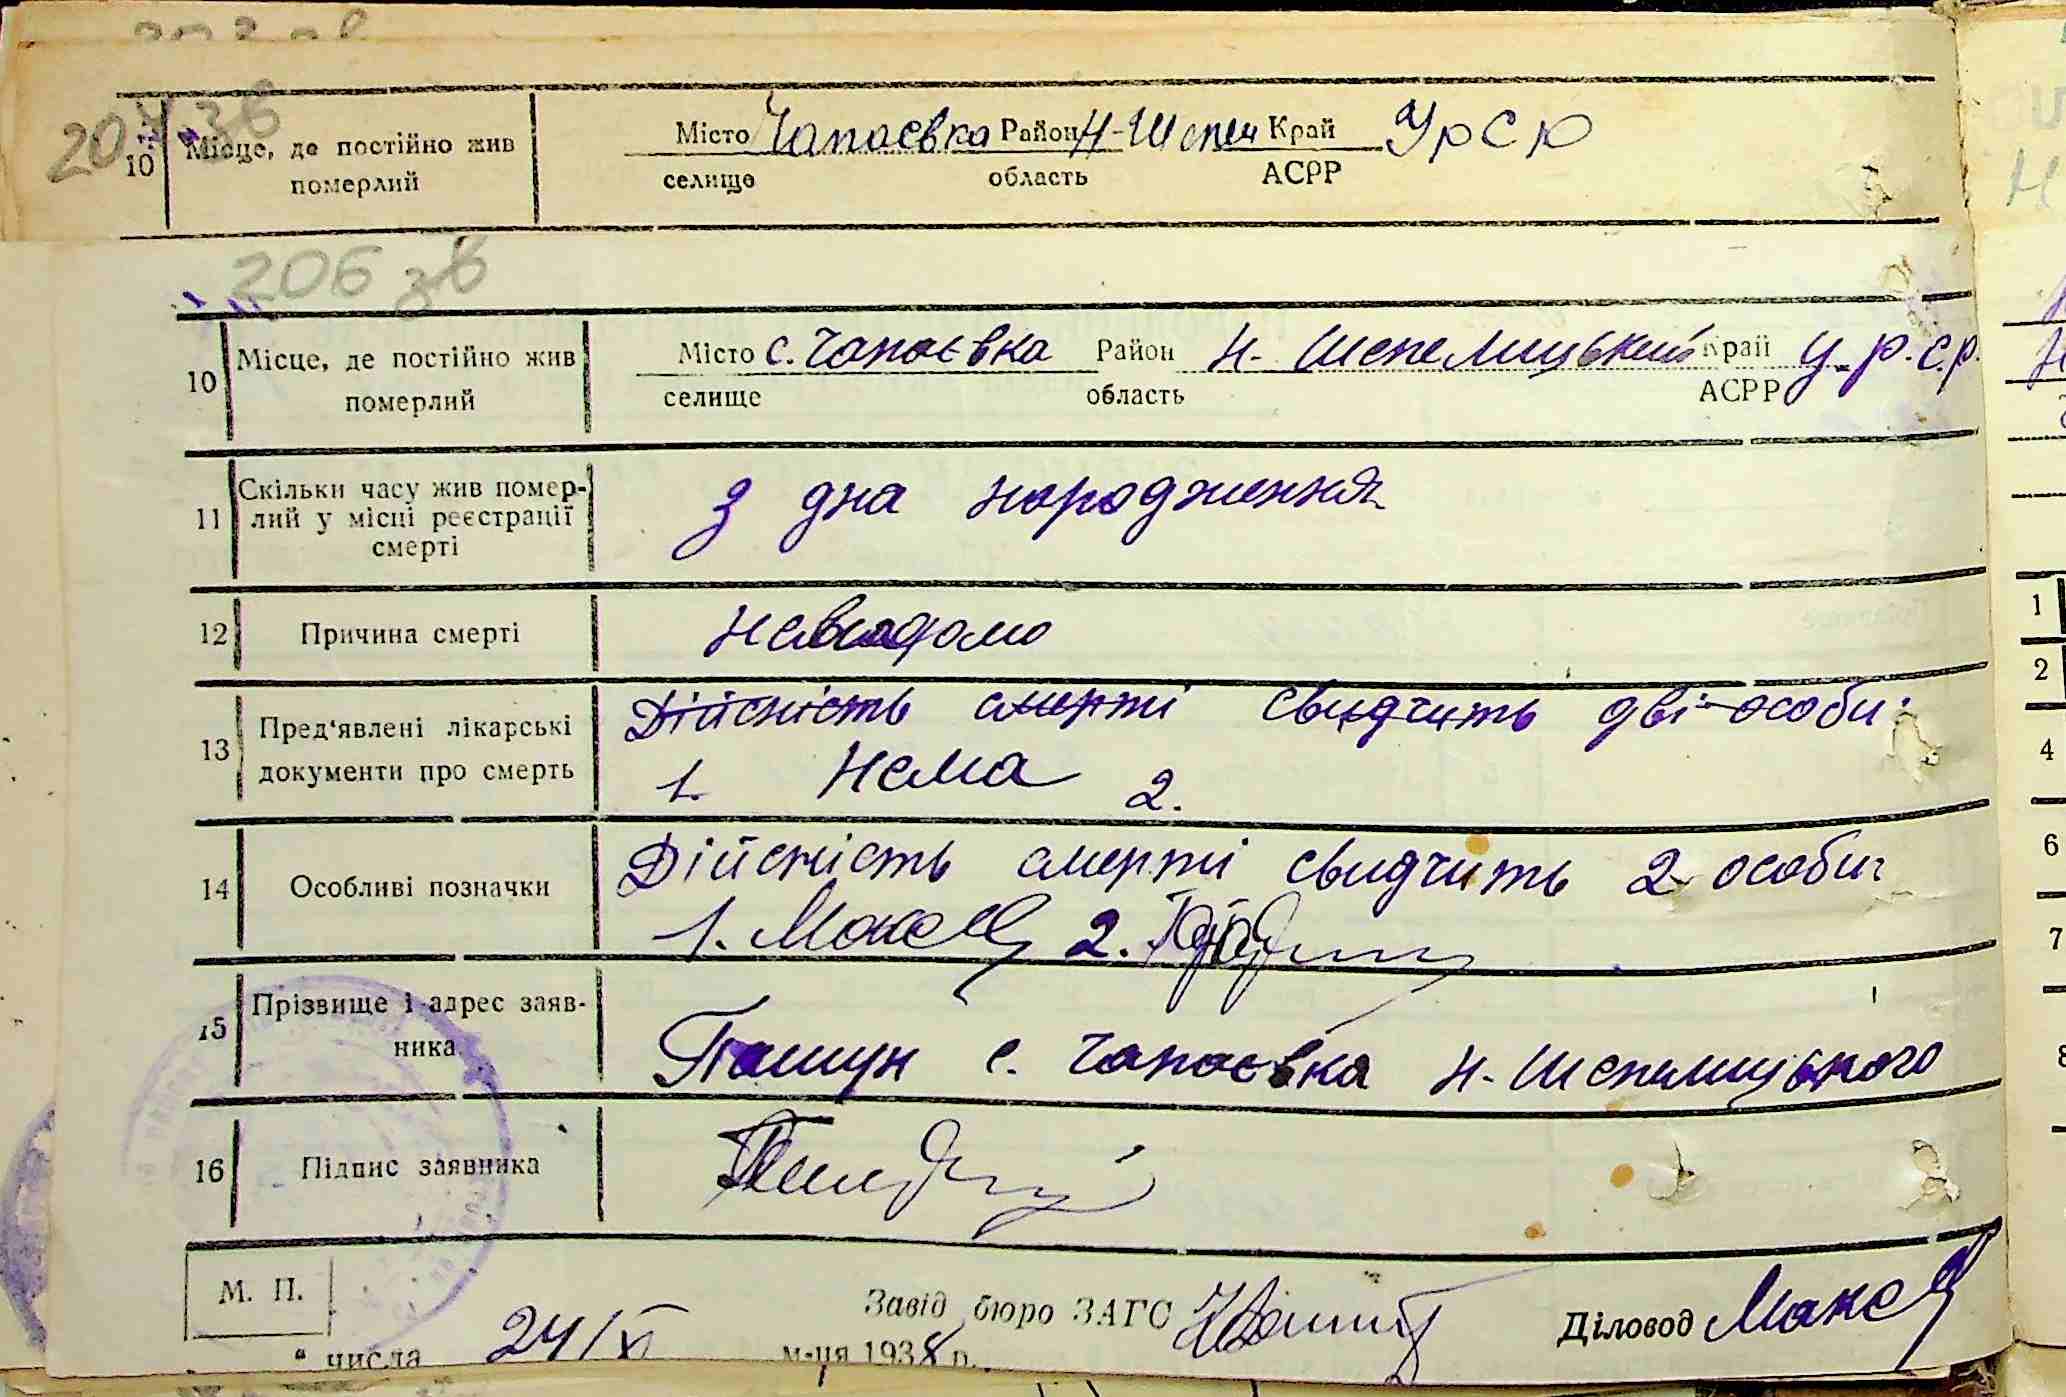 207 зв
10 Місце, де постійно жив Місто Чапаєвка Район Н-Шпол Край УРСР
померлий селище область АСРР
206 зв
10 Місце, де постійно жив Місто с. Чапаєвка Район Н- Край У.Р.С.Р.
померлий селище область АСРР
11 Скільки часу жив помер-
лий у місці реєстрації з дна народження
смерті
12 Причина смерті невидомо
13 Пред'явлені лікарські Дійсність смерті свидчить дві особи:
документи про смерть 1. Нема 2.
14 Особливі позначки Дійсність смерті свидчить 2 особи:
1. 2.
15 Прізвище і адрес заяв-
ника Пашун с. Чапаєвка Н-
16 Підпис заявника
М. П.
Завід бюро ЗАГС Діловод
" числа 24/XI м-ця 1938 р.